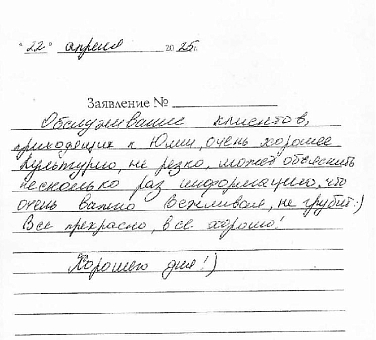 "22" апреля 2025г.
Заявление №
Обслуживание клиентов,
приходящих к Юлии, очень хорошее
культурно, не резко, может объяснить
несколько раз информацию, что
очень важно вежливая, не грубит:)
Все прекрасно, все хорошо!
Хорошего дня!)